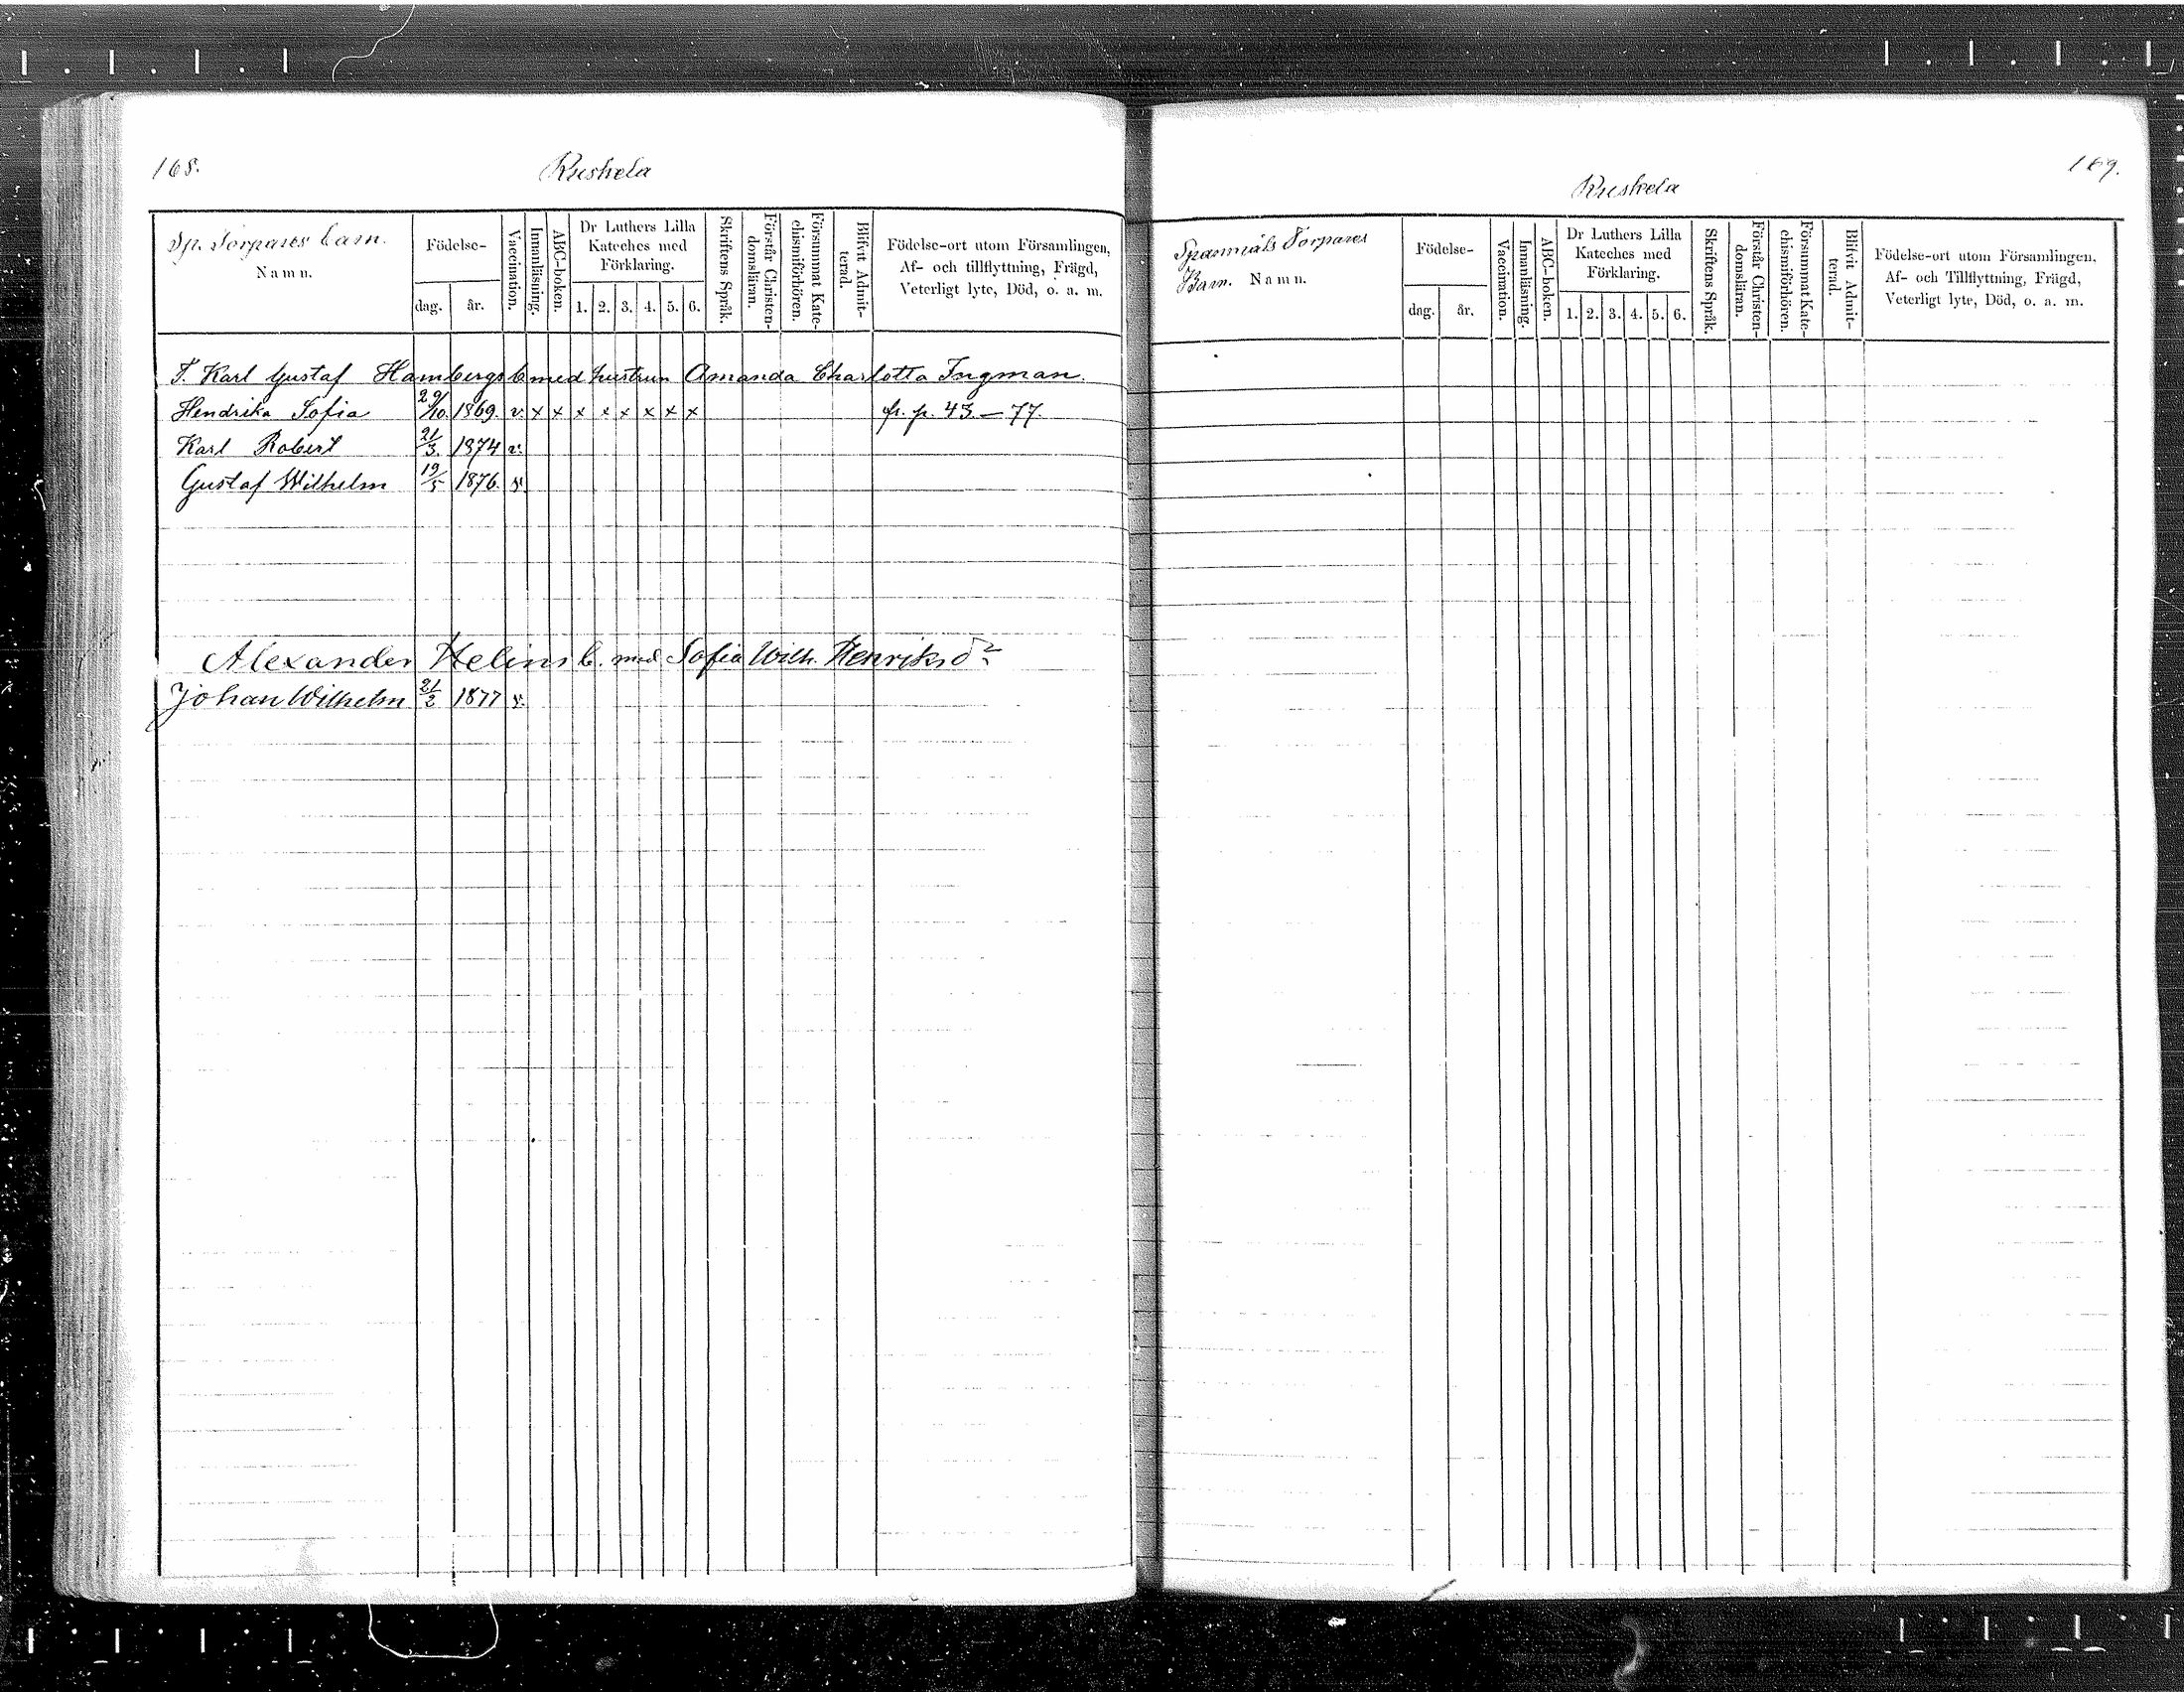 168.
Ruskela
Sp. Torpares barn.
Namn.
Födelse-
dag. år.
Vaccination.
Innanläsning.
ABC-boken.
Dr Luthers Lilla
Kateches med
Förklaring.
1. 2. 3. 4. 5. 6.
Skriftens Språk.
Förstår Christen-
domsläran.
Försummat Kate-
chismiförhören.
Blifvit Admit-
terad.
Födelse-ort utom Församlingen,
Af- och tillflyttning, Frägd,
Veterligt lyte, Död, o. a. m.
T. Karl Gustaf Hambergs b. med hustrun Amanda Charlotta Ingman.
Hendrika Sofia 29/10. 1869. v. x x x x x x x x fr. p. 43. — 77.
Karl Robert 21/3. 1874 v.
Gustaf Wilhelm 19/5 1876. v.
Alexander Helins b. med Sofia Wilh. Henriksdr
Johan Wilhelm 21/2 1877 v.
169.
Ruskela
Spanmåls Torpares
Barn. Namn.
Födelse-
dag. år.
Vaccination.
Innanläsning.
ABC-boken.
Dr Luthers Lilla
Kateches med
Förklaring.
1. 2. 3. 4. 5. 6.
Skriftens Språk.
Förstår Christen-
domsläran.
Försummat Kate-
chismiförhören.
Blifvit Admit-
terad.
Födelse-ort utom Församlingen,
Af- och Tillflyttning, Frägd,
Veterligt lyte, Död, o. a. m.